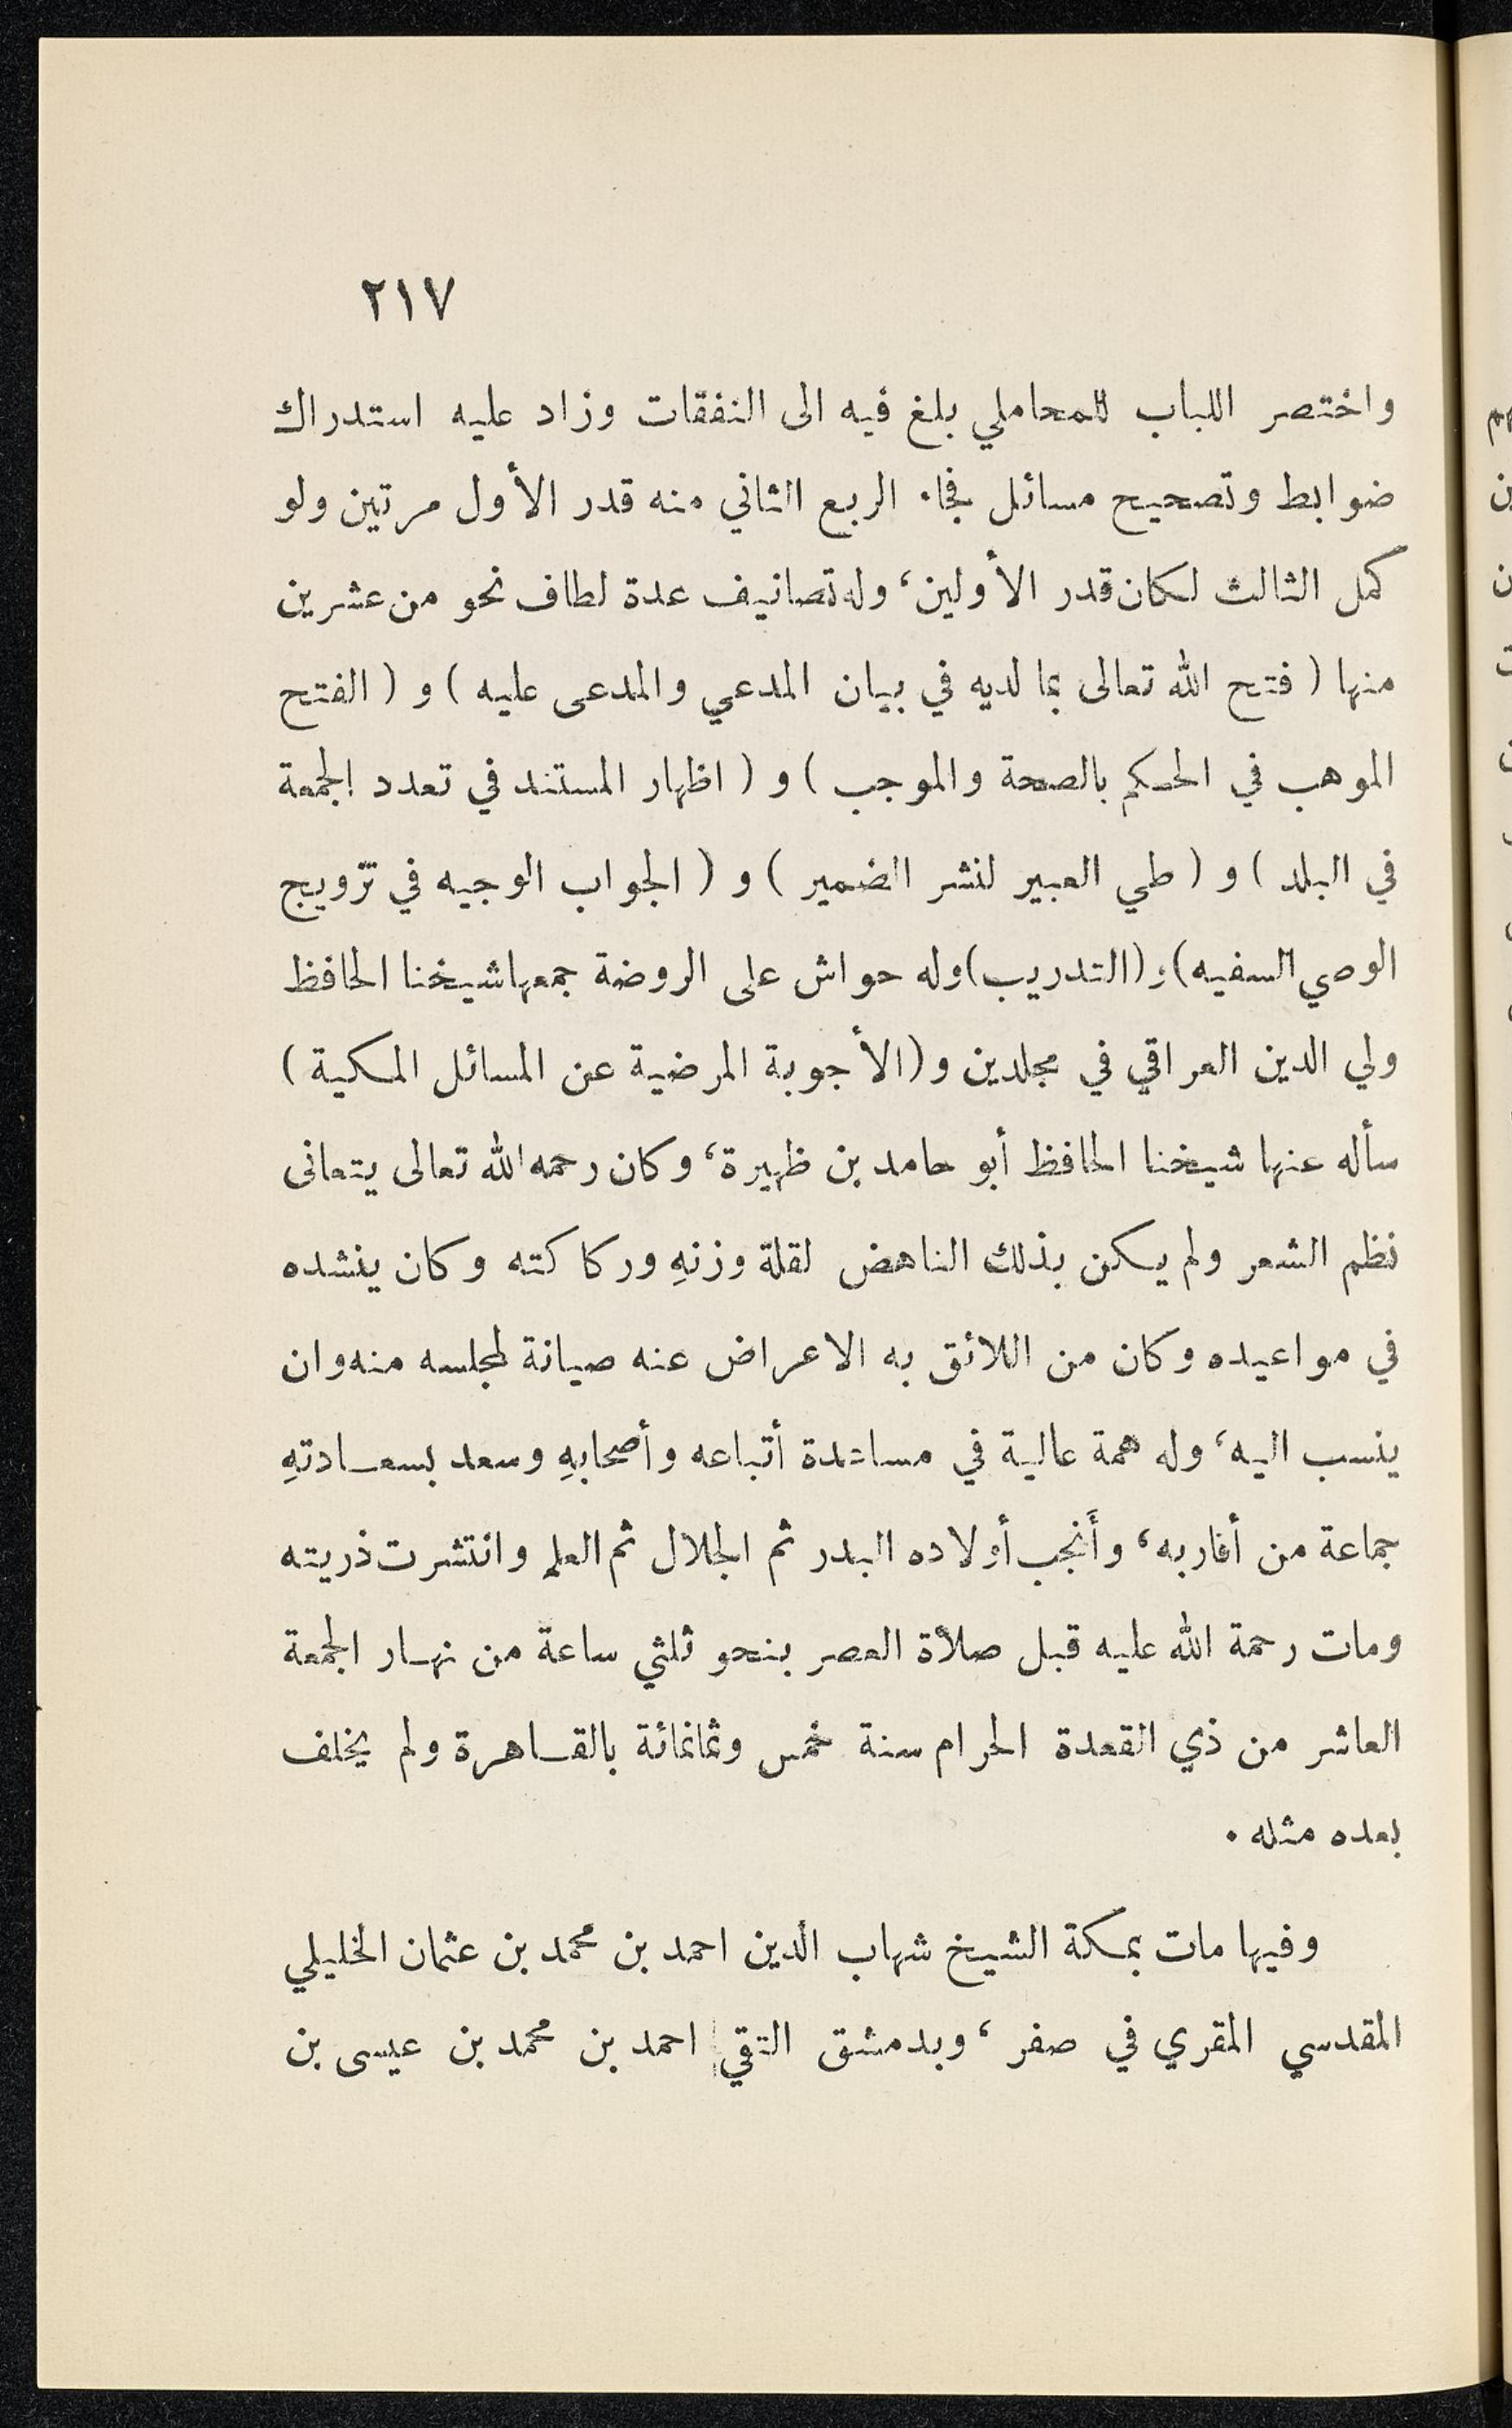 ٢١٧
واختصر اللباب للمحاملي بلغ فيه الى النفقات وزاد عليه استدراك
ضوابط وتصحيح مسائل فجاء الربع الثاني منه قدر الأول مرتين ولو
كمل الثالث لكان قدر الأولين، وله تصانيف عدة لطاف نحو من عشرين
منها ( فتح الله تعالى بما لديه في بيان المدعي والمدعى عليه ) و ( الفتح
الموهب في الحكم بالصحة والموجب ) و ( اظهار المستند في تعدد الجمعة
في البلد ) و ( طي العبير لنشر الضمير ) و ( الجواب الوجيه في تزويج
الوصي السفيه) و (التدريب) وله حواش على الروضة جمعها شيخنا الحافظ
ولي الدين العراقي في مجلدين و (الأجوبة المرضية عن المسائل المكية )
سأله عنها شيخنا الحافظ أبو حامد بن ظهيرة، وكان رحمه الله تعالى يتعانى
نظم الشعر ولم يكن بذلك الناهض لقلة وزنهِ وركاكته وكان ينشده
في مواعيده وكان من اللائق به الاعراض عنه صيانة لمجلسه منه وان
ينسب اليه، وله همة عالية في مساعدة أتباعه وأصحابهِ وسعد بسعـادتهِ
جماعة من أقاربه، وأَنجب أولاده البدر ثم الجلال ثم العلم وانتشرت ذريته
ومات رحمة الله عليه قبل صلاة العصر بنحو ثلثي ساعة من نهـار الجمعة
العاشر من ذي القعدة الحرام سنة خمس وثمانمائة بالقـاهرة ولم يخلف
بعده مثله .
وفيها مات بمكة الشيخ شهاب الدين احمد بن محمد بن عثمان الخليلي
المقدسي المقري في صفر ، وبدمشق التقي احمد بن محمد بن عيسى بن